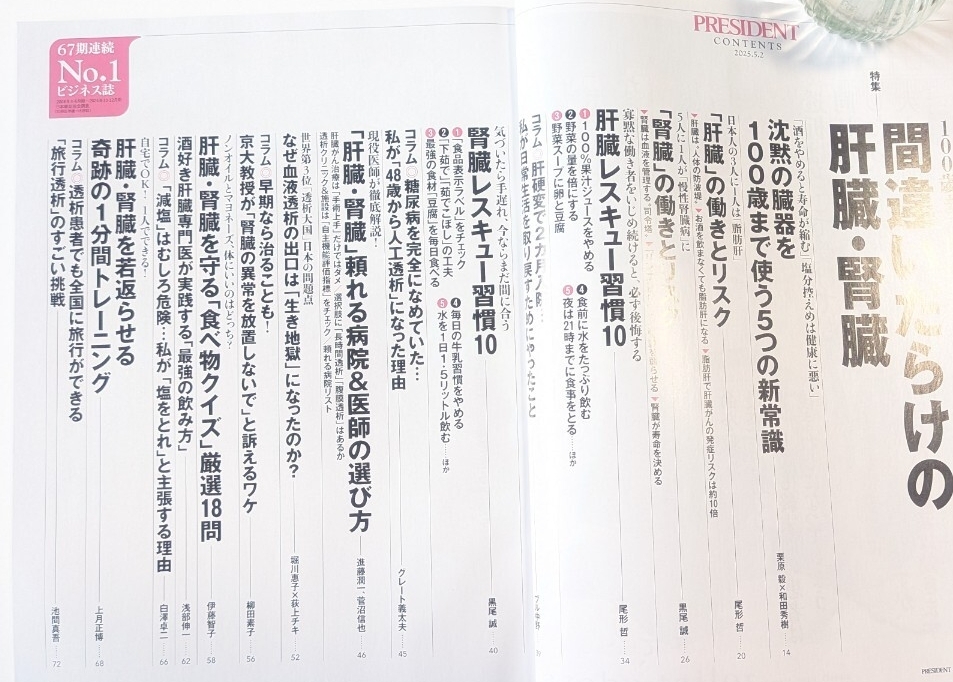 PRESIDENT
CONTENTS
2025.5.2
特集
100歳
間違いだらけの
肝臓・腎臓
「酒をやめると寿命が縮む」「塩分控えめは健康に悪い」
沈黙の臓器を
100歳まで使う5つの新常識
栗原 毅×和田秀樹
14
日本人の3人に1人は「脂肪肝」
「肝臓」の働きとリスク
▼肝臓は「人体の防波堤」 ▼お酒を飲まなくても脂肪肝になる ▼脂肪肝で肝臓がんの発症リスクは約10倍
尾形 哲
20
5人に1人が「慢性腎臓病」に
「腎臓」の働きと
▼腎臓は血液を管理する「司令塔」
▼腎臓が寿命を決める
黒尾 誠
26
寡黙な働き者をいじめ続けると、必ず後悔する
肝臓レスキュー習慣10
❶100%果汁ジュースをやめる
❷野菜の量を倍にする
❸野菜スープに卵と豆腐
❹食前に水をたっぷり飲む
❺夜は21時までに食事をとる……ほか
尾形 哲
34
コラム 肝硬変で2カ月入院
私が日常生活を取り戻すためにやったこと
気づいたら手遅れ、今ならまだ間に合う
腎臓レスキュー習慣10
❶「食品表示ラベル」をチェック
❷「下茹で」「茹でこぼし」の工夫
❸最強の食材「豆腐」を毎日食べる
❹毎日の牛乳習慣をやめる
❺水を1日1・5リットル飲む……ほか
黒尾 誠
40
コラム◎糖尿病を完全になめていた…
私が「48歳から人工透析」になった理由
グレート義太夫
45
現役医師が徹底解説!
「肝臓・腎臓」頼れる病院&医師の選び方
肝臓がん治療は「手術上手」だけではダメ/選択肢に「長時間透析」「腹膜透析」はあるか
透析クリニック&施設は「自主機能評価指標」をチェック/頼れる病院リスト
進藤潤一、菅沼信也
46
世界第3位「透析大国」日本の問題点
なぜ血液透析の出口は「生き地獄」になったのか?
堀川惠子×荻上チキ
52
コラム◎早期なら治ることも!
京大教授が「腎臓の異常を放置しないで」と訴えるワケ
柳田素子
56
ノンオイルとマヨネーズ、体にいいのはどっち?
肝臓・腎臓を守る「食べ物クイズ」厳選18問
伊藤智子
58
酒好き肝臓専門医が実践する「最強の飲み方」
浅部伸一
62
コラム◎「減塩」はむしろ危険…私が「塩をとれ」と主張する理由
白澤卓二
66
自宅でOK!1人でできる!
肝臓・腎臓を若返らせる
奇跡の1分間トレーニング
上月正博
68
コラム◎透析患者でも全国に旅行ができる
「旅行透析」のすごい挑戦
池間真吾
72
67期連続
No.1
ビジネス誌
PRESIDENT